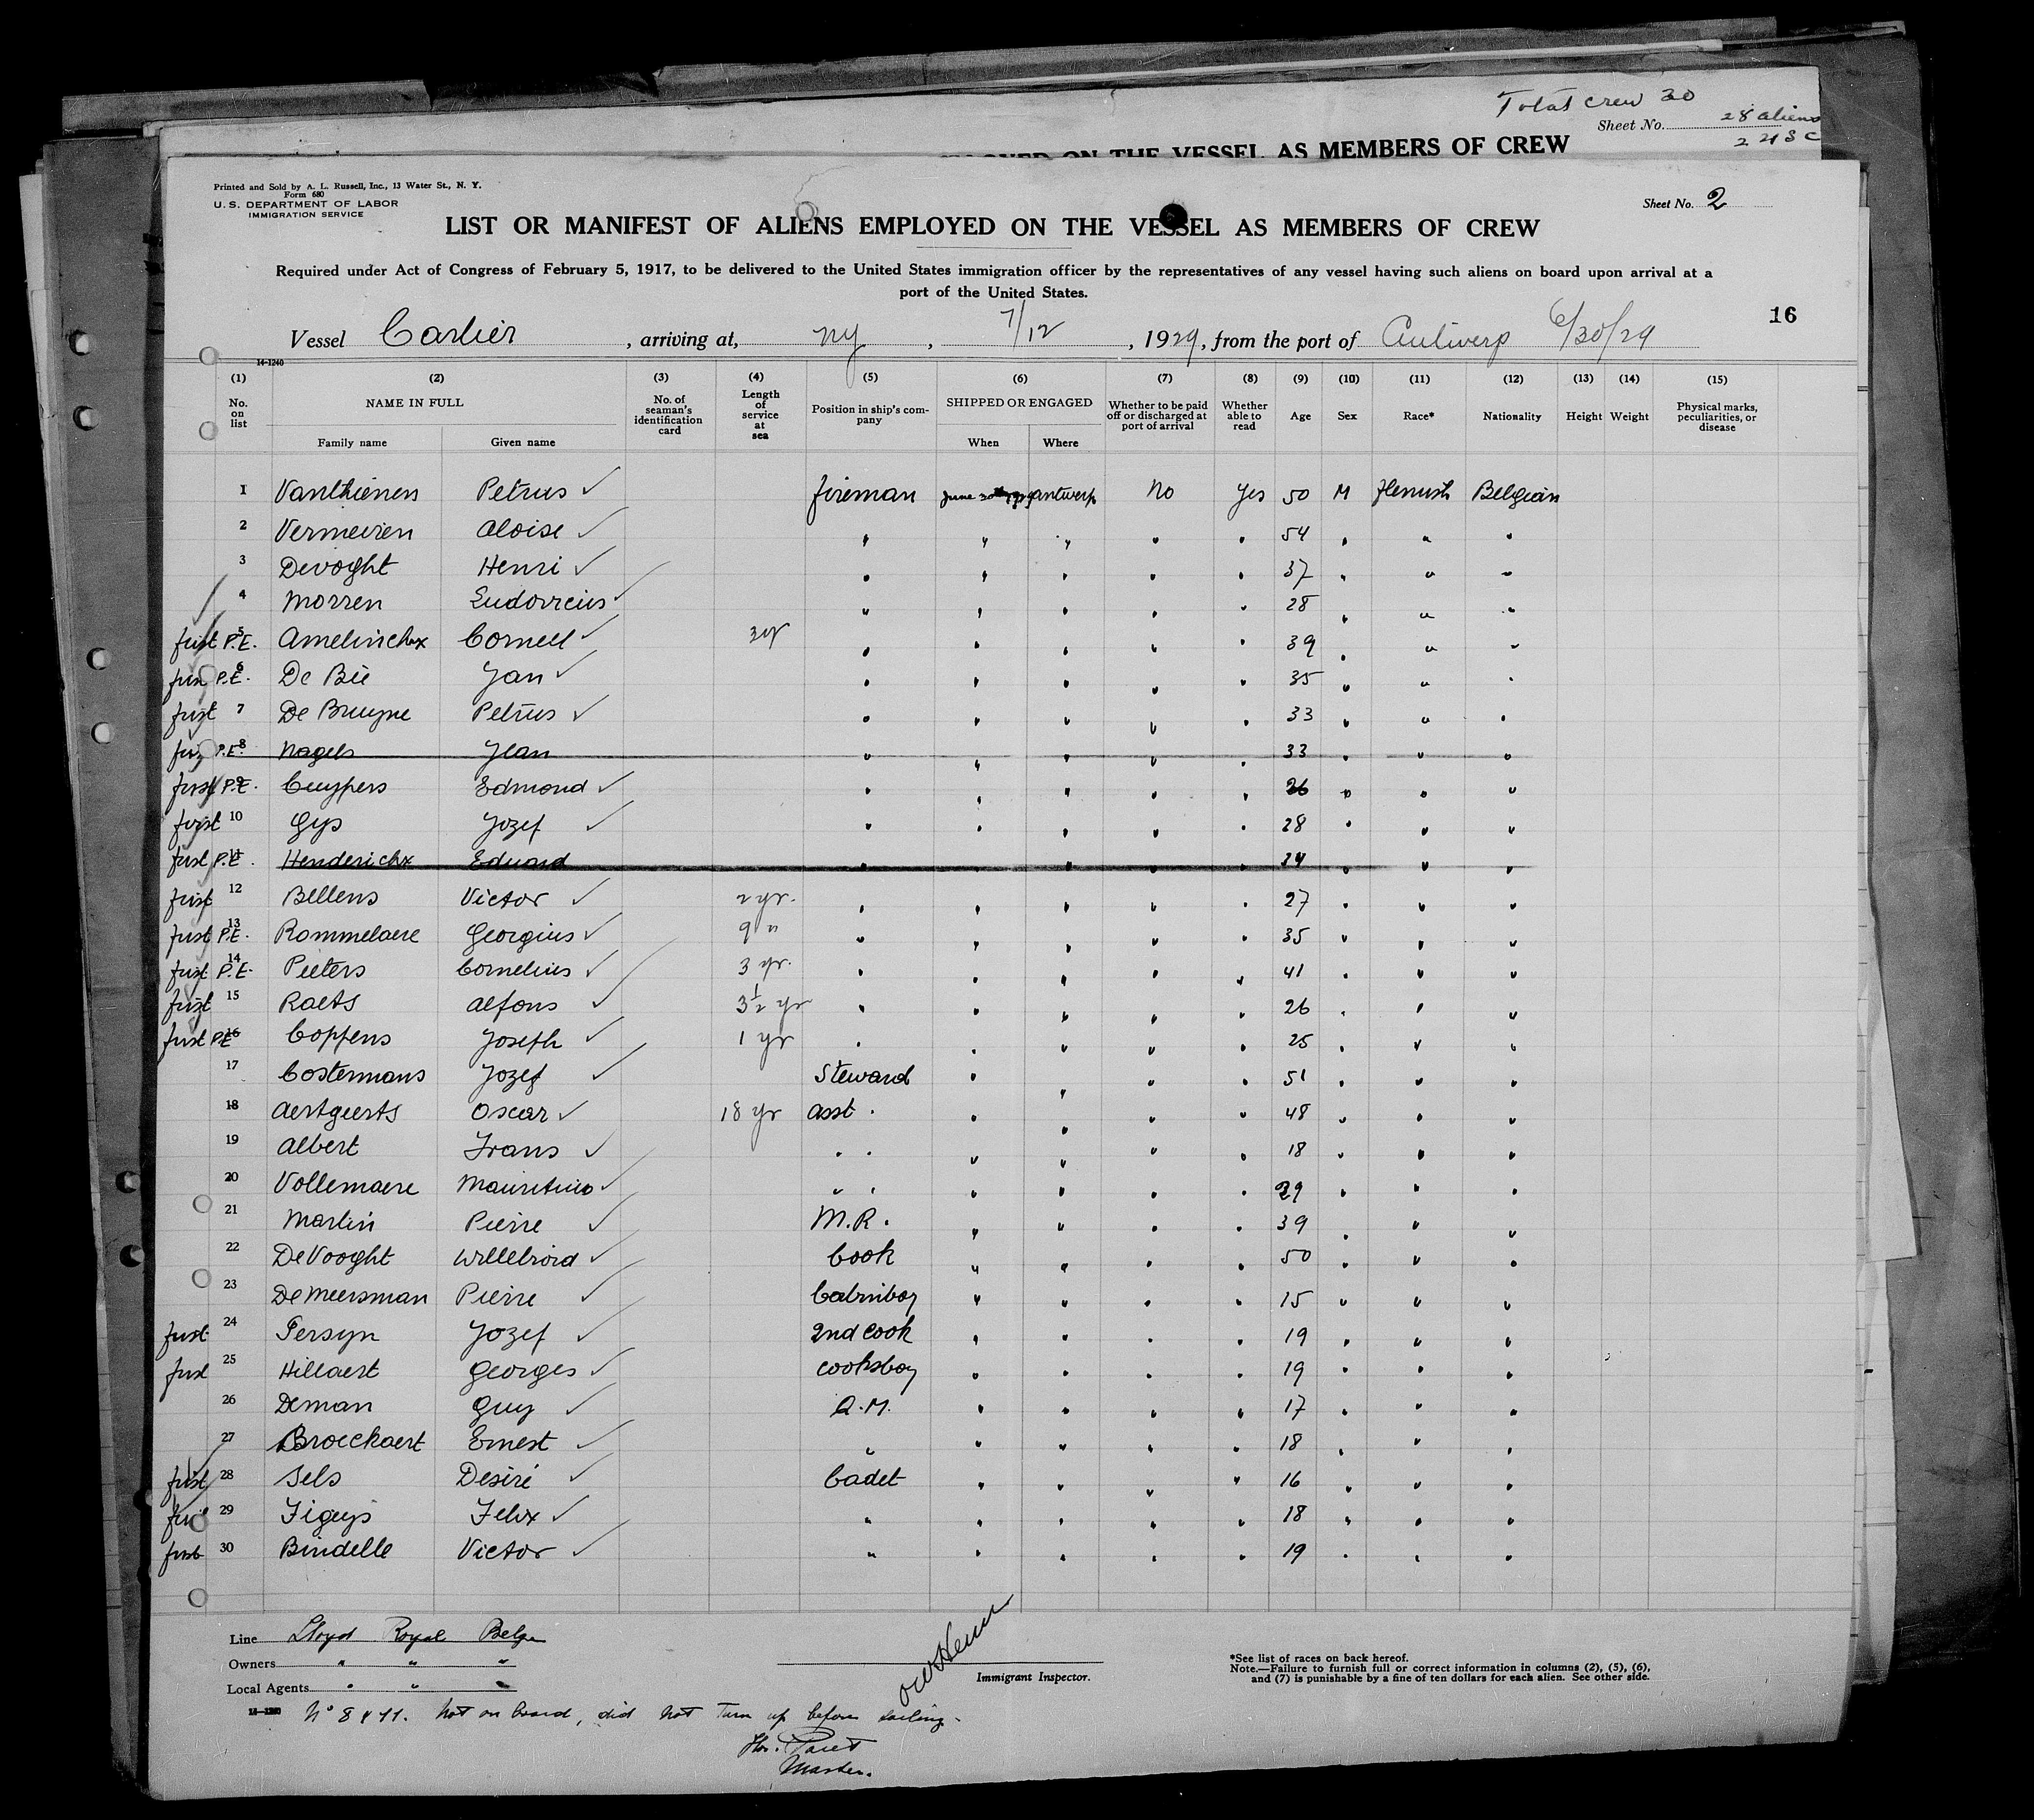 Total crew 30
Sheet No. 28 aliens
2 USC
ON THE VESSEL AS MEMBERS OF CREW
Printed and Sold by A. L. Russell, Inc., 13 Water St., N. Y.
Form 680
U. S. DEPARTMENT OF LABOR
IMMIGRATION SERVICE
Sheet No. 2
LIST OR MANIFEST OF ALIENS EMPLOYED ON THE VESSEL AS MEMBERS OF CREW
Required under Act of Congress of February 5, 1917, to be delivered to the United States immigration officer by the representatives of any vessel having such aliens on board upon arrival at a
port of the United States.
16
Vessel Carlier, arriving at, NY, 7/12, 1929, from the port of Antwerp 6/30/29
14-1240
(1) (2) (3) (4) (5) (6) (7) (8) (9) (10) (11) (12) (13) (14) (15)
No. on list NAME IN FULL No. of seaman's identification card Length of service at sea Position in ship's company SHIPPED OR ENGAGED Whether to be paid off or discharged at port of arrival Whether able to read Age Sex Race* Nationality Height Weight Physical marks, peculiarities, or disease
Family name Given name When Where
1 Vanthienen Petrus ✓ fireman June 30 1929 antwerp No yes 50 M Flemish Belgian
2 Vermeiren Aloise ✓ " " " " " 54 " " "
3 Devoght Henri ✓ " " " " " 37 " " "
4 Morren Ludovicus ✓ " " " " " 28 " " "
first P.E. 5 Amelinckx Cornell ✓ " " " " " 39 " " "
first P.E. 6 De Bie Jan ✓ " " " " " 35 " " "
first 7 De Bruyne Petrus ✓ " " " " " 33 " " "
first P.E. 8 Nagels Jean " " " " " 33 " " "
first P.E. 9 Cuypers Edmond ✓ " " " " " 26 " " "
first 10 Gys Jozef ✓ " " " " " 28 " " "
first P.E. 11 Henderickx Eduard " " " " " 34 " " "
first 12 Bellens Victor ✓ 2 yr. " " " " " 27 " " "
first P.E. 13 Rommelaere Georgius ✓ 9 " " " " " " 35 " " "
first P.E. 14 Pieters Cornelius ✓ 3 yr. " " " " " 41 " " "
first 15 Raets Alfons ✓ 3½ yr " " " " " 26 " " "
first P.E. 16 Coppens Joseph ✓ 1 yr " " " " " 25 " " "
17 Costermans Jozef ✓ Steward " " " " 51 " " "
18 Aertgeerts Oscar ✓ 18 yr asst " " " " " 48 " " "
19 Albert Frans ✓ " " " " " " 18 " " "
20 Vollemaere Mauritius ✓ " " " " " " 29 " " "
21 Martin Pierre ✓ M.R. " " " " 39 " " "
22 DeVooght Willebrord ✓ Cook " " " " 50 " " "
23 DeMeersman Pierre ✓ Cabinboy " " " " 15 " " "
first 24 Persyn Jozef ✓ 2nd cook " " " " 19 " " "
first 25 Hillaert Georges ✓ cooksboy " " " " 19 " " "
26 Deman Guy ✓ A.M. " " " " 17 " " "
27 Broeckaert Ernest ✓ " " " " " 18 " " "
first 28 Sels Desiré ✓ Cadet " " " " 16 " " "
first 29 Figeys Felix ✓ " " " " " 18 " " "
first 30 Bindelle Victor ✓ " " " " " 19 " " "
Line Lloyd Royal Belge
Owners " " "
Local Agents " " "
Immigrant Inspector.
*See list of races on back hereof.
Note.—Failure to furnish full or correct information in columns (2), (5), (6),
and (7) is punishable by a fine of ten dollars for each alien. See other side.
14-1240
N° 8 & 11. Not on board, did not turn up before sailing.
Master.